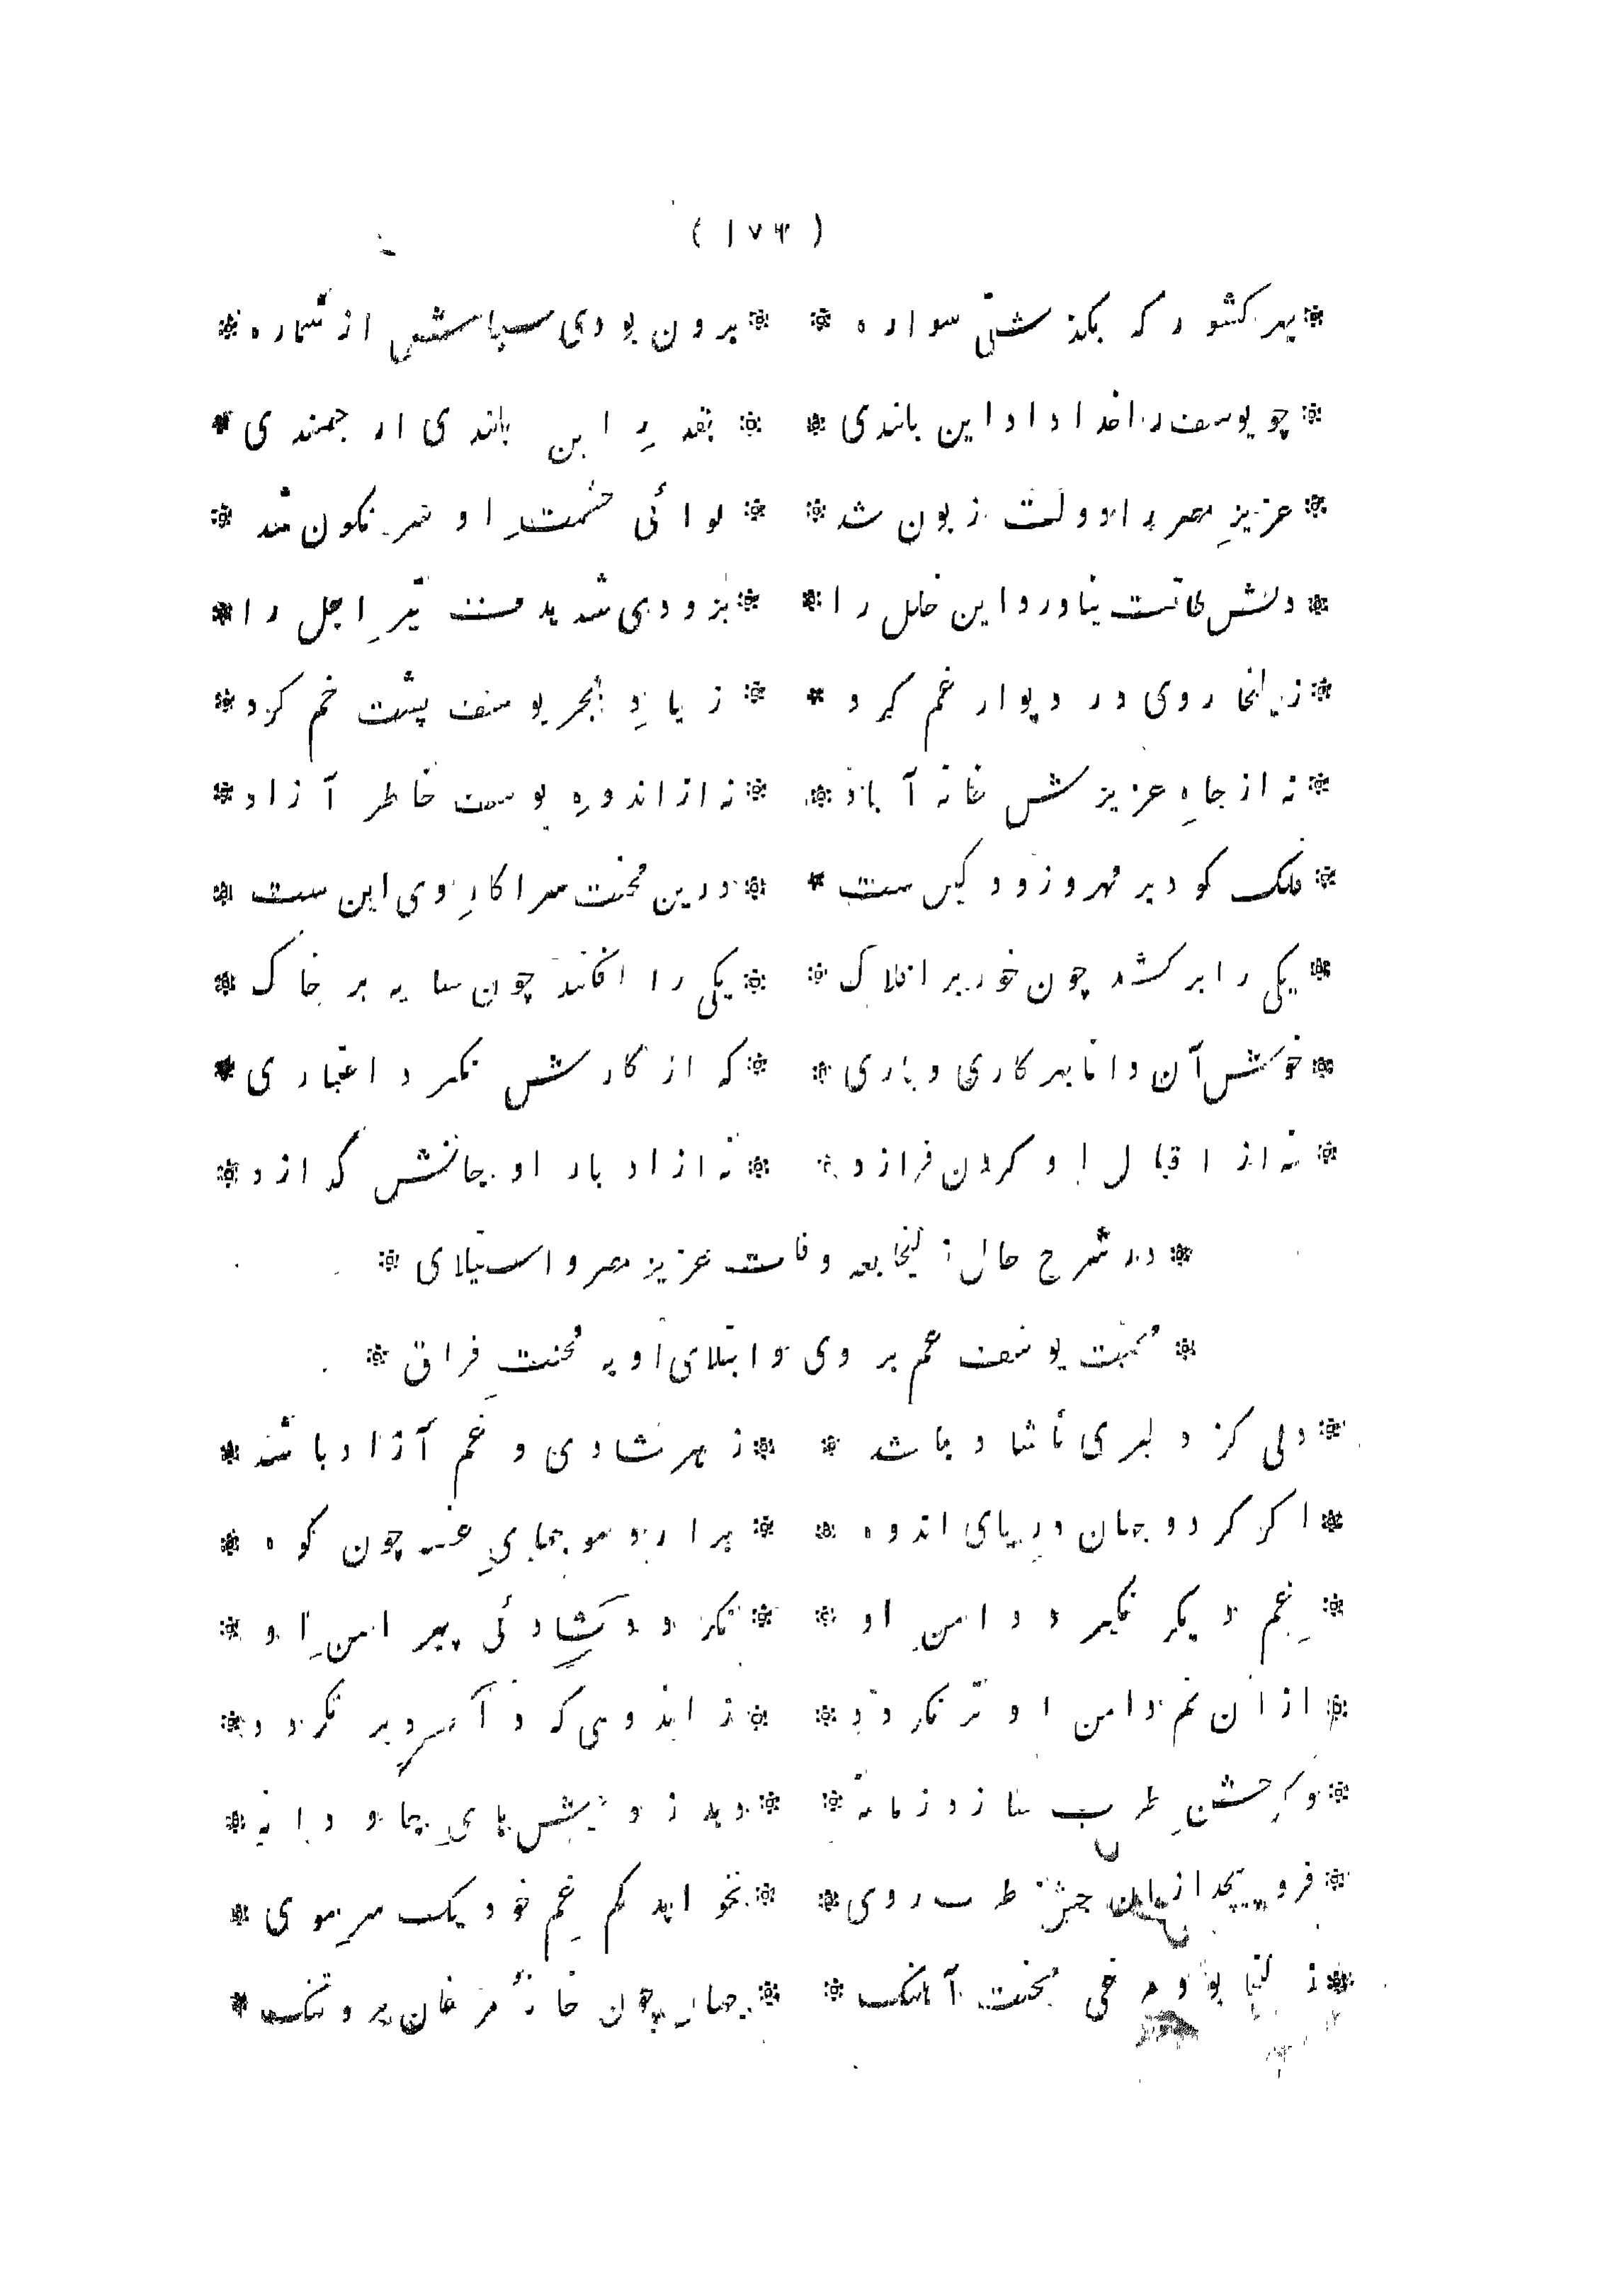 ( ١٧٣ )
* بهر کشور که بگذشتی سواره * * برون بودی سپاهش از شماره *
* چو یوسف را خدا داد این بلندی * * بقدرِ این بلندی ارجمندی *
* عزیزِ مصر را دولت زبون شد * * لوائی حشمتِ او سر نکون شد *
* دلش طاقت نیاورد این خلل را * * بزودی شد هدف تیرِ اجل را *
* زلیخا روی در دیوار غم کرد * * ز بارِ هجر یوسف پشت خم کرد *
* نه از جاهِ عزیزش خانه آباد * * نه از اندوهِ یوسف خاطر آزاد *
* فلک کو دیر مهر و زود کین ست * * درین محنت سرا کارِ وی این ست *
* یکی را بر کشد چون خور بر افلاک * * یکی را افکند چون سایه بر خاک *
* خوش آن دانا بهر کاری و باری * * که از کارش نگیرد اعتباری *
* نه از اقبال او کردن فرازد * * نه از ادبار او جانش گدازد *
* در شرح حال زلیخا بعد وفات عزیز مصر و استیلای *
* محبت یوسف عم بر وی و ابتلای او به محنتِ فراق *
* دلی کز دلبری ناشاد باشد * * ز هر شادی و غم آزاد باشد *
* اکر کردد جهان دریای اندوه * * برارد موجهایِ غم چون کوه *
* غمِ دیکر نکیرد دامنِ او * * نکردد شادئی پیرامنِ او *
* ازان نم دامن او تر نکردد * * ز اندوهی که دارد بر نکردد *
* وکر جشنِ طرب سازد زمانه * * دهد زو عیش هایِ جاودانه *
* فرو پیچد ازان جشن طرب روی * * نخواهد کم غمِ خود یک سرِ موی *
* زلیخا بود مرغی محنت آهنک * * جهان چون خانهٔ مرغان برو تنک *